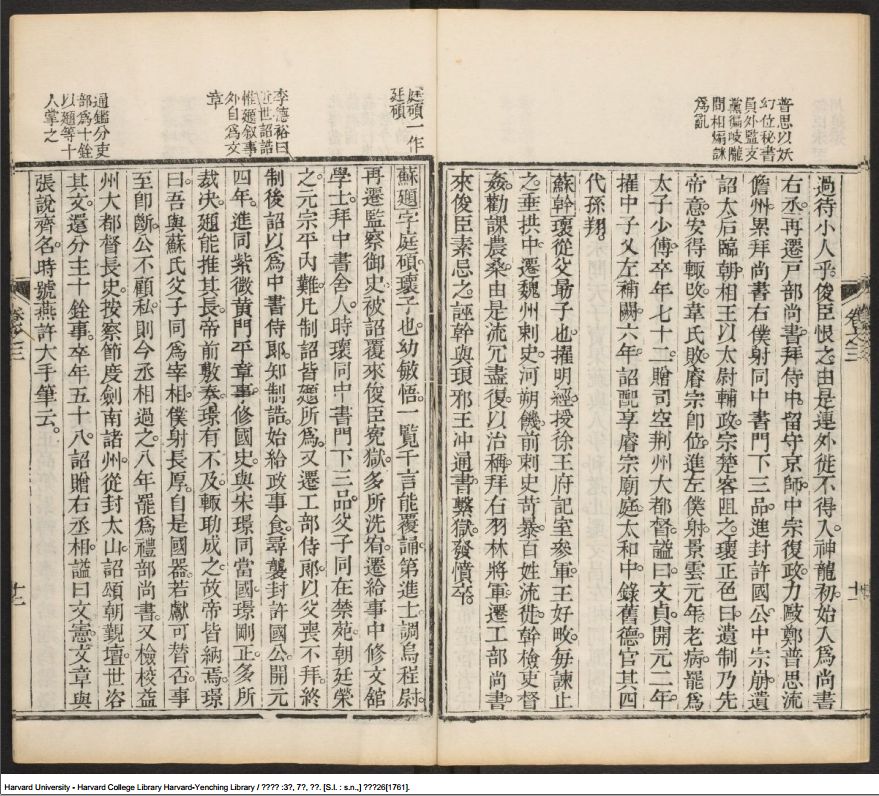 普思以妖
幻位秘書
員外監支
黨徧岐隴
間相煽訹
爲亂
過待小人乎俊臣恨之由是連外徙不得入神龍初始入爲尚書
右丞再遷戸部尚書拜侍中留守京師中宗復政力駮鄭普思流
儋州累拜尚書右僕射同中書門下三品進封許國公中宗崩遺
詔太后臨朝相王以太尉輔政宗楚客阻之瓌正色曰遺制乃先
帝意安得輙改韋氏敗睿宗卽位進左僕射景雲元年老病罷爲
太子少傅卒年七十二贈司空荆州大都督謚曰文貞開元二年
擢中子乂左補闕六年詔配享睿宗廟庭太和中錄舊德官其四
代孫翔
蘇幹瓌從父勗子也擢明經授徐王府記室參軍王好畋每諫止
之垂拱中遷魏州刺史河朔饑前刺史苛暴百姓流徙幹檢吏督
姦勸課農桑由是流冗盡復以治稱拜右羽林將軍遷工部尚書
來俊臣素忌之誣幹與琅邪王冲通書繫獄發憤卒
卷之三
十一
庭碩一作
廷碩
李德裕曰
近世詔誥
惟頲叙事
外自爲文
章
通鑑分吏
部爲十銓
以頲等十
人掌之
蘇頲字庭碩瓌子也幼敏悟一覧千言能覆誦第進士調烏程尉
再遷監察御史被詔覆來俊臣寃獄多所洗宥遷給事中修文舘
學士拜中書舍人時瓌同中書門下三品父子同在禁苑朝廷榮
之元宗平內難凡制詔皆頲所爲又遷工部侍郎以父喪不拜終
制後詔以爲中書侍郎知制誥始給政事食尋襲封許國公開元
四年進同紫微黃門平章事修國史與宋璟同當國璟剛正多所
裁决頲能推其長帝前敷奏璟有不及輙助成之故帝皆納焉璟
曰吾與蘇氏父子同爲宰相僕射長厚自是國器若獻可替否事
至卽斷公不顧私則今丞相過之八年罷爲禮部尚書又檢校益
州大都督長史按察節度劍南諸州從封太山詔頌朝覲壇世咨
其文還分主十銓事卒年五十八詔贈右丞相謚曰文憲文章與
張說齊名時號燕許大手筆云
卷之三
十二
Harvard University - Harvard College Library Harvard-Yenching Library / ???? :3?, 7?, ??. [S.l. : s.n.,] ???26[1761].